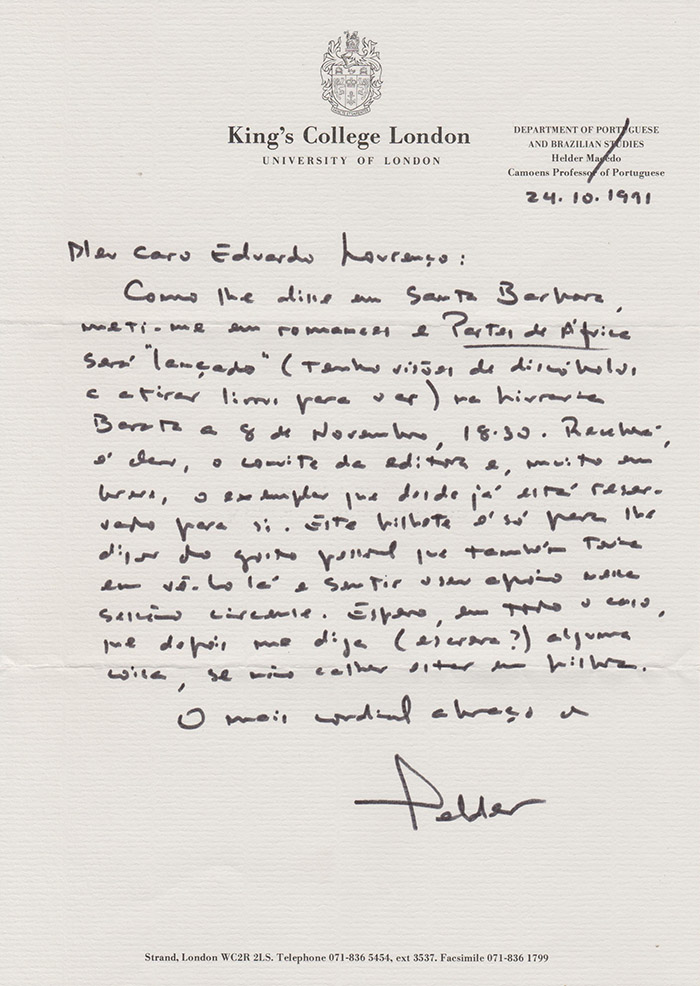 King's College London
UNIVERSITY OF LONDON
DEPARTMENT OF PORTUGUESE
AND BRAZILIAN STUDIES
Helder Macedo
Camoens Professor of Portuguese
24.10.1991
Meu caro Eduardo Lourenço:
Como lhe disse em Santa Barbara,
meti-me em romances e Partes de África
será "lançado" (tenho visões de discóbolos
a atirar livros para o ar) na Livraria
Barata a 8 de Novembro, 18.30. Receberá,
é claro, o convite da editora e, muito em
breve, o exemplar que desde já está reser-
vado para si. Este bilhete é só para lhe
dizer do gosto pessoal que também teria
em vê-lo lá e sentir o seu apoio nessa
sessão circense. Espero, em todo o caso,
que depois me diga (escreva?) alguma
coisa, se não calhar estar em Lisboa.
O mais cordial abraço do
Helder
Strand, London WC2R 2LS. Telephone 071-836 5454, ext 3537. Facsimile 071-836 1799